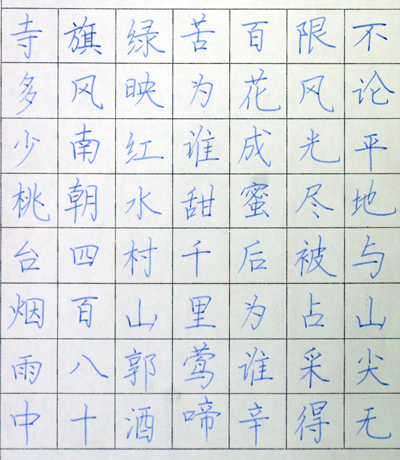 不论平地与山尖无
限风光尽被占采得
百花成蜜后为谁辛
苦为谁甜千里莺啼
绿映红水村山郭酒
旗风南朝四百八十
寺多少桃台烟雨中